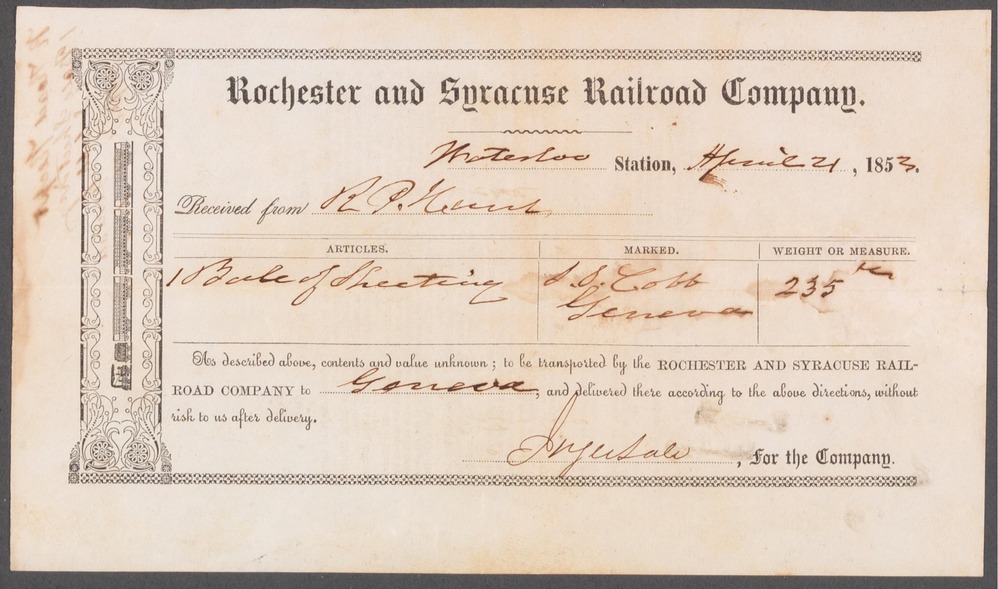 Rochester and Syracuse Railroad Company.
Waterloo Station, April 21, 1853.
Received from R. P. Hunt
ARTICLES. MARKED. WEIGHT OR MEASURE.
1 Bale of Sheeting S. S. Cobb 235
Geneva
As described above, contents and value unknown; to be transported by the ROCHESTER AND SYRACUSE RAIL-
ROAD COMPANY to Geneva, and delivered there according to the above directions, without
risk to us after delivery.
, For the Company.